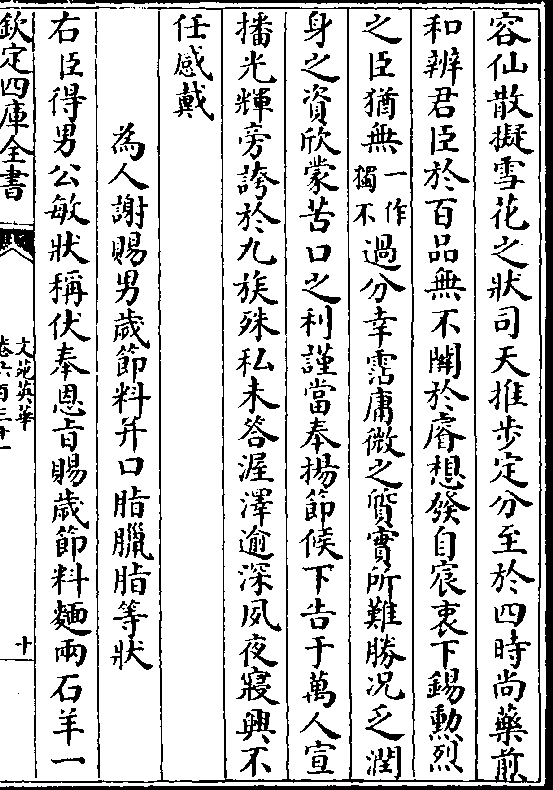 容仙散擬雪花之狀司天推步定分至於四時尚藥煎
和辨君臣於百品無不關於睿想發自宸衷下錫勲烈
之臣猶無一作獨不過分幸霑庸微之質實所難勝况乏潤
身之資欣蒙苦口之利謹當奉揚節候下告于萬人宣
播光輝旁誇於九族殊私未答渥澤逾深夙夜寢興不
任感戴
為人謝賜男歲節料并口脂臘脂等狀
右臣得男公敏狀稱伏奉恩旨賜歲節料麵兩石羊一
欽定四庫全書
文苑英華
卷六百三十一
十